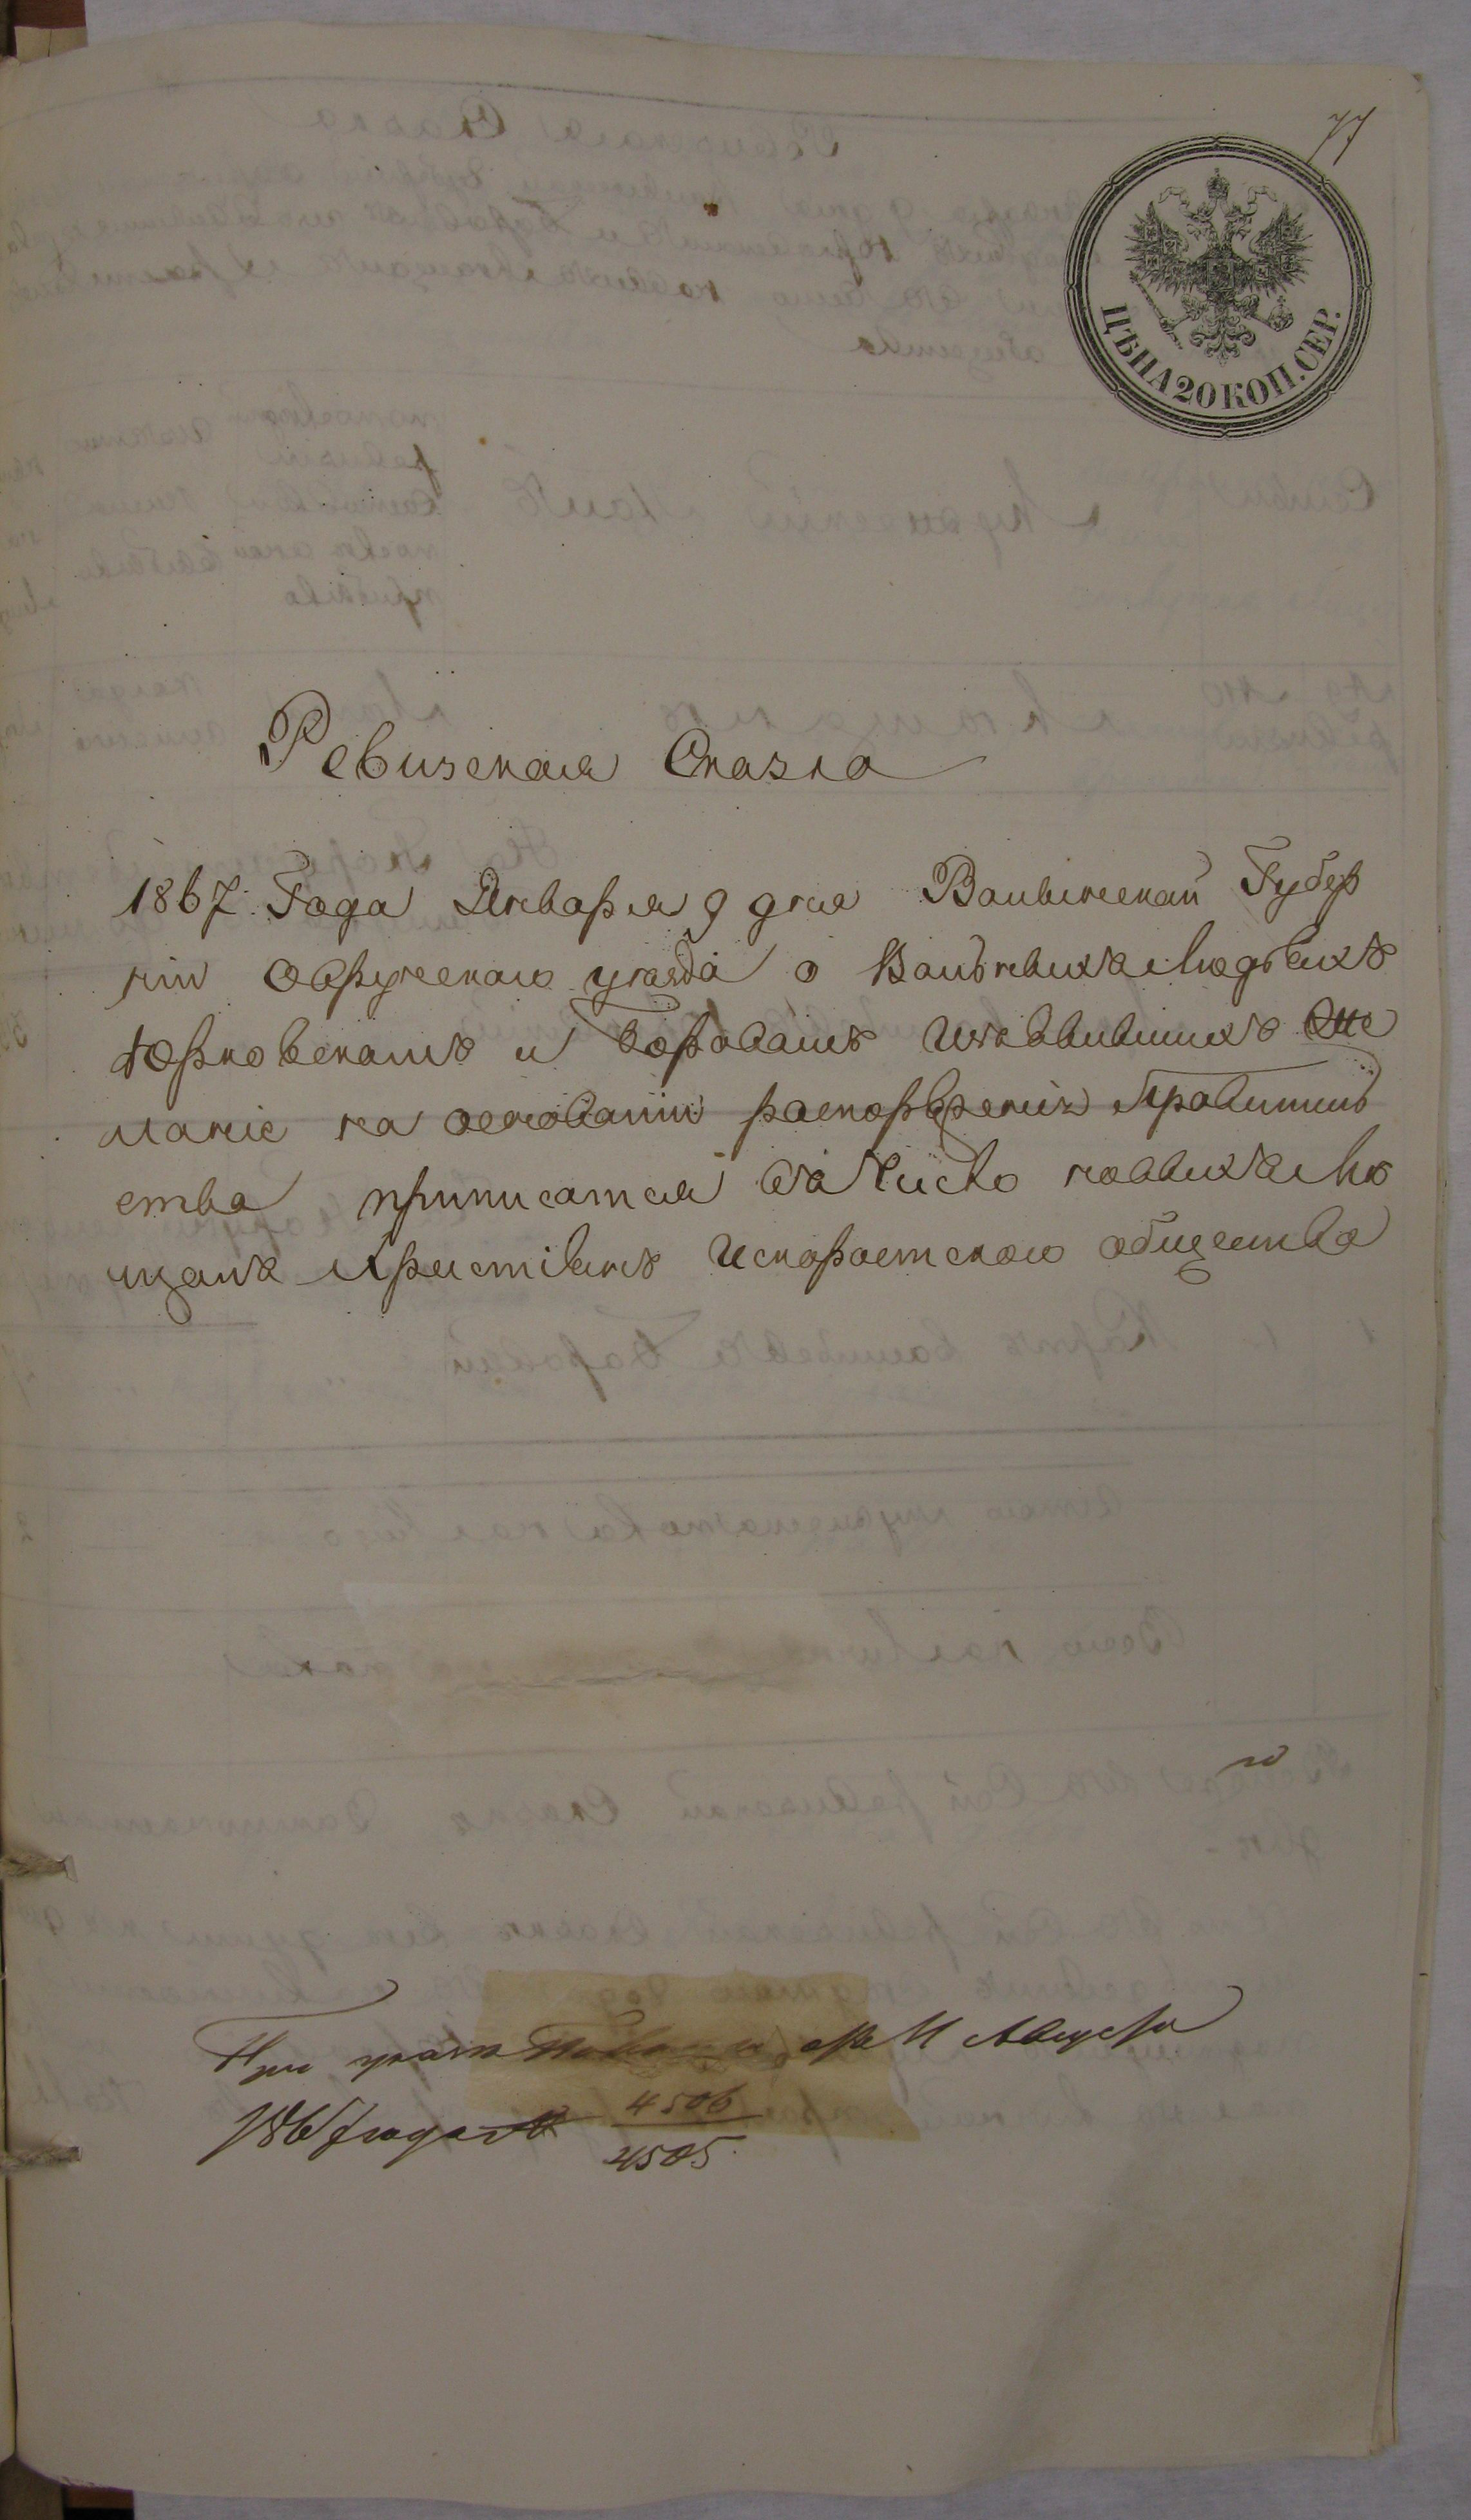 77
ЦѢНА 20 КОП. СЕР.
Ревизская Сказка
1867 Года Января 9 дня Волынской Губер
ніи Овручскаго уезда о Вольныхъ Людяхъ
и Боровымъ Изъявившихъ же
ланіе на основаніи распоряженія Правитель
ства приписатся въ число
щанъ Христіянъ Искоростскаго общества
При указѣ отъ 11 Августа
1867 года №
4506
4505